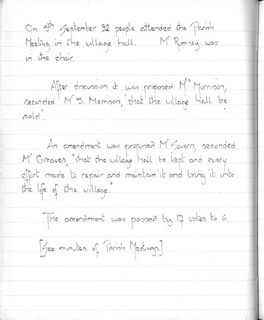 On 9th September 32 people attended the Parish
Meeting in the village hall. Mr Rumsey was
in the chair.
After discussion it was proposed Mrs Morrison,
seconded Mr S. Morrison, that the village hall be
sold.
An amendment was proposed Mr Severn, seconded
Mr Greaves, "that the village hall be kept and every
effort made to repair and maintain it and bring it into
the life of the village."
The amendment was passed by 17 votes to 6.
[See minutes of Parish Meetings]